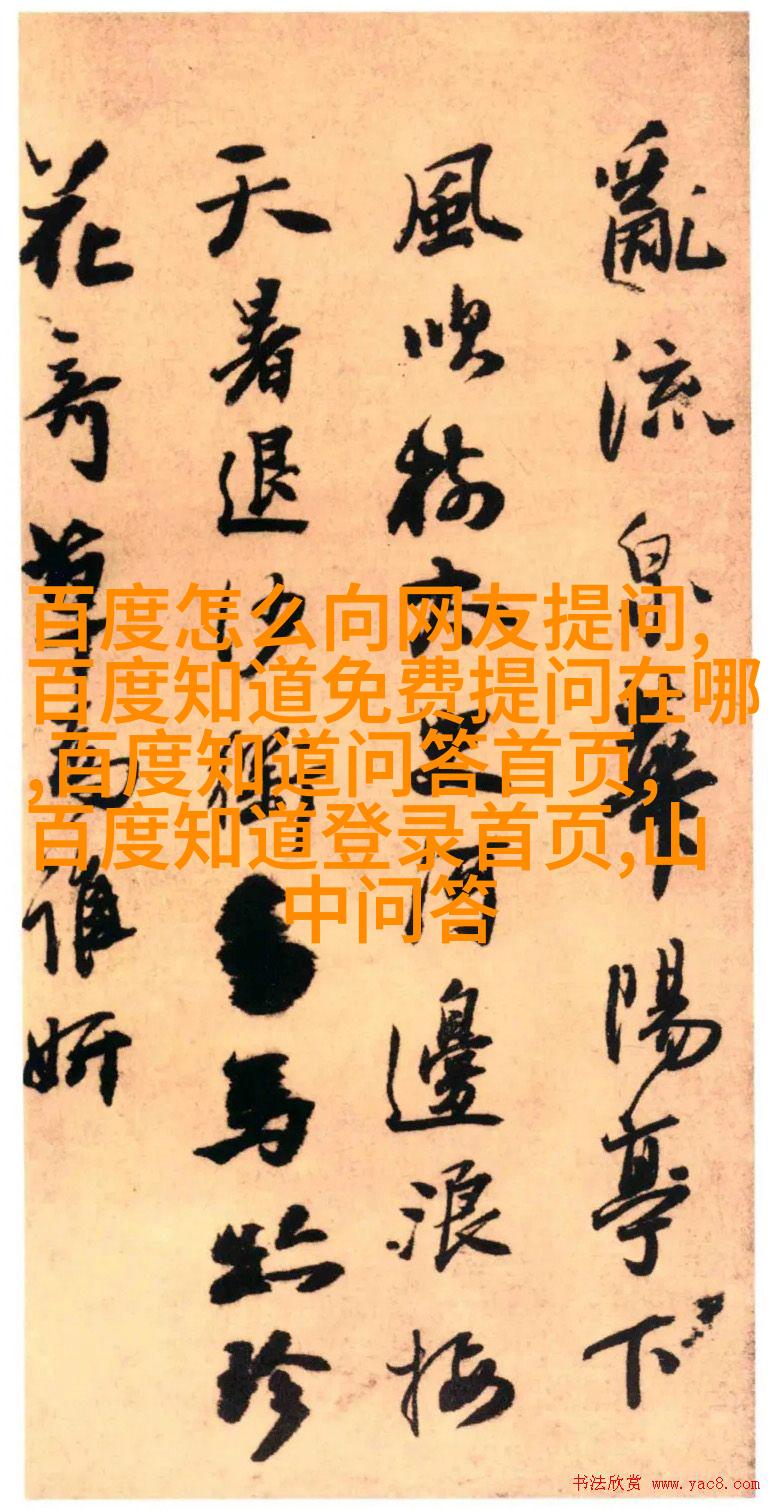 亂流泉華陽亭下
風吹 邊浪接
天暑退沙 馬 珍
花奇草 誰妍
百度怎么向网友提问,
百度知道免费提问在哪
,百度知道问答首页,
百度知道登录首页,山
中问答
书法欣赏 www.yac8.com